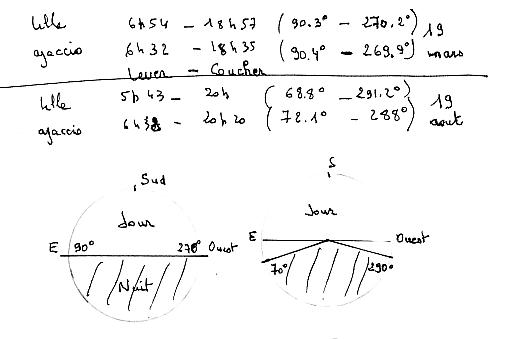 Lille 6h54 - 18h57 (90.3° - 270.2°) 19
ajaccio 6h32 - 18h35 (90.4° - 269.9°) mars
Lever - Coucher
Lille 5h43 - 20h (68.8° - 291.2°) 19
ajaccio - 20h20 (72.1° - 288°) aout
Sud
Jour
E 90° 270° Ouest
Nuit
S
Jour
E Ouest
70° 290°